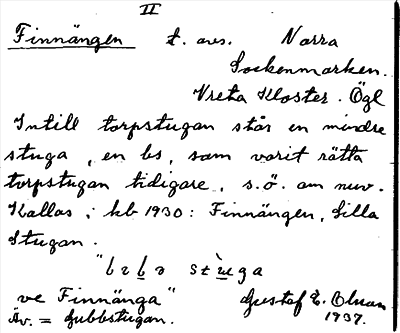 II
Finnängen t. avs. Norra
Sockenmarken.
Vreta Kloster. Ögl
Intill torpstugan står en mindre
stuga, en bs, som varit rätta
torpstugan tidigare, s.ö. om nuv.
Kallas i kb 1930: Finnängen, Lilla
Stugan.
ve Finnänga" Gustaf E. Olsson
Äv. = Gubbstugan. 1937.